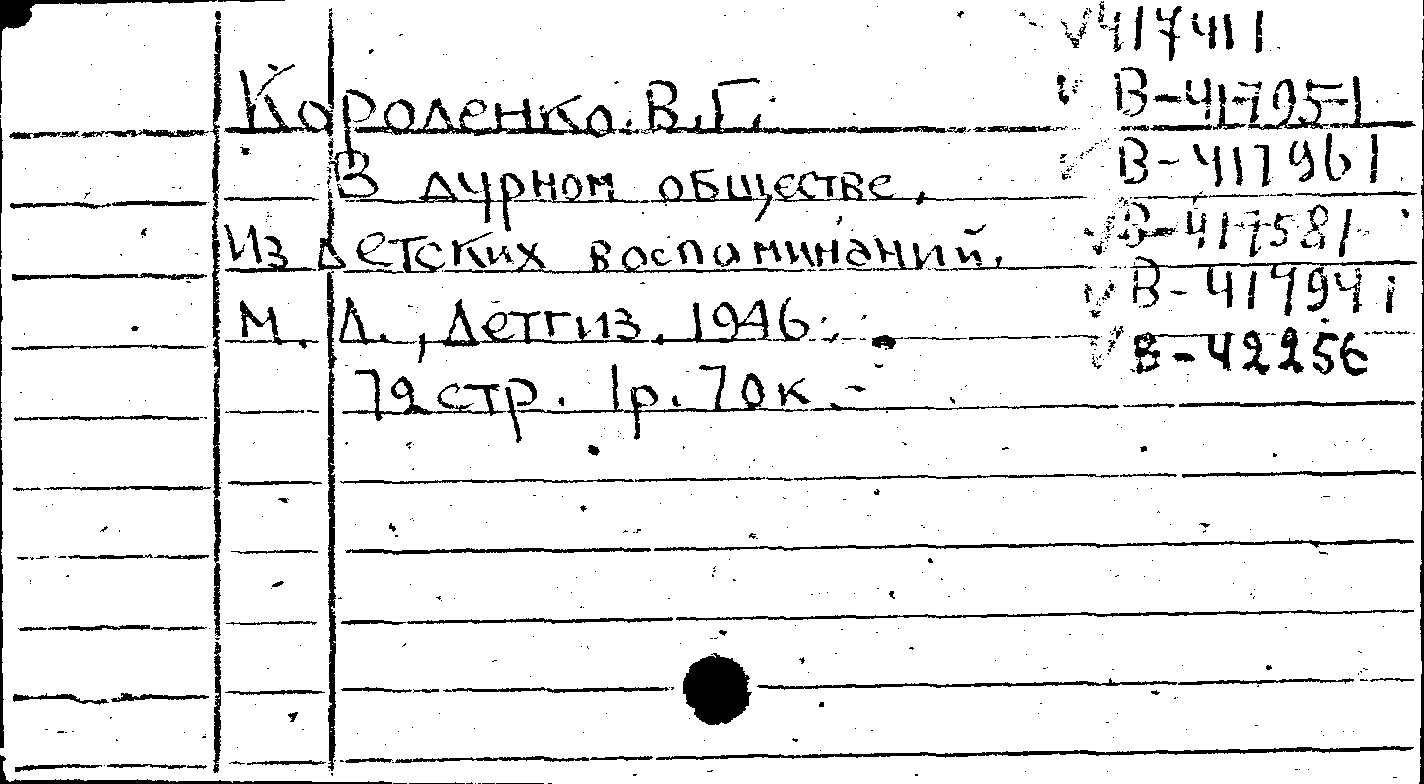 √417411
Короленко.В.Г.
√ В-417951
√ В-417961
В дурном обществе,
√ В-417581
Из детских воспоминаний.
√ В-417941
М. Л., Детгиз. 1946.
√ В-42256
72 стр. 1р. 70к.-